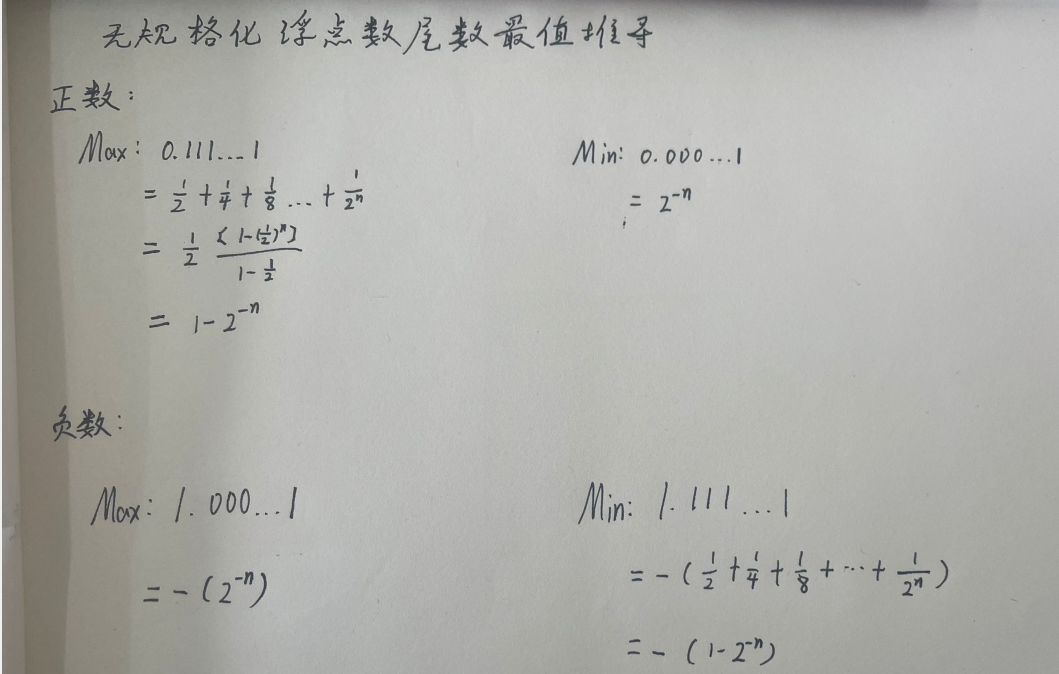 无规格化浮点数尾数最值推导
正数:
Max: 0.111...1
= 1/2 + 1/4 + 1/8 ... + 1/2ⁿ
= 1/2 [1-(1/2)ⁿ] / 1-1/2
= 1-2⁻ⁿ
Min: 0.000...1
= 2⁻ⁿ
负数:
Max: 1.000...1
= -(2⁻ⁿ)
Min: 1.111...1
= -(1/2 + 1/4 + 1/8 + ... + 1/2ⁿ)
= -(1-2⁻ⁿ)